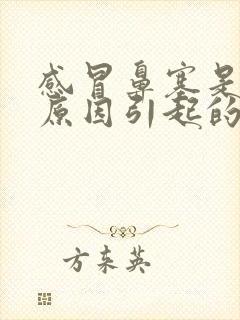 感冒鼻塞是
原因引起的
方东英